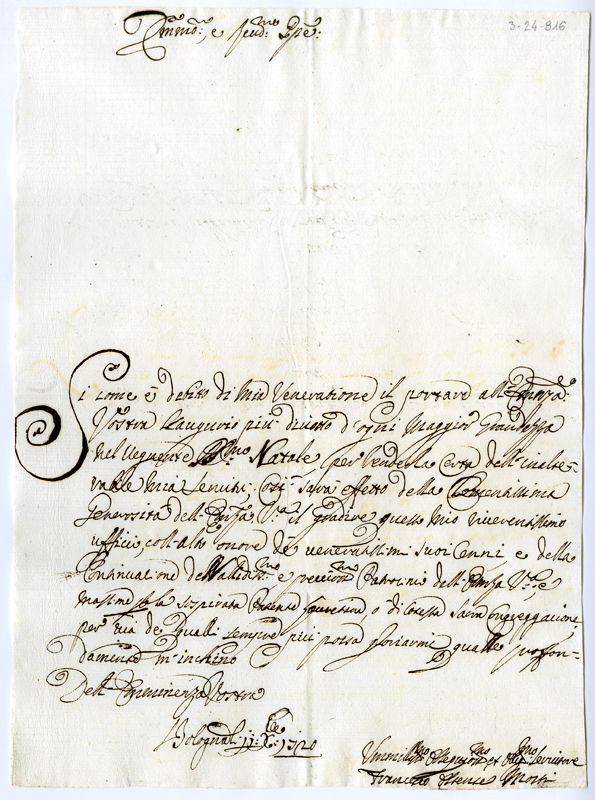 3-24-816
Emmo: e Revd: Pre:
Si come è debito di mia Veneratione il portare all' Emza:
Vostra l'augurio più divoto d'ogni maggior Grandezza
nel veguente Smo Natale per renderla certa dell' inalte=
rabile mia servitù, così sarà effetto della
Generosità dell' Emza Va il gradire questo mio riverentissimo
ufficio, coll' alto onore de venerattimi suoi Cenni e della
Continuatione del e Patrocinio dell' Emza Va e
massime la sospirata o di cotesta sacra Congregatione
per via de quali sempre più possa gloriarmi, quale proffon=
damente m' inchino
Dell' Eminenza Vostra
Bologna 11: Xbre 1720
Ummilmo et servitore
Francesco